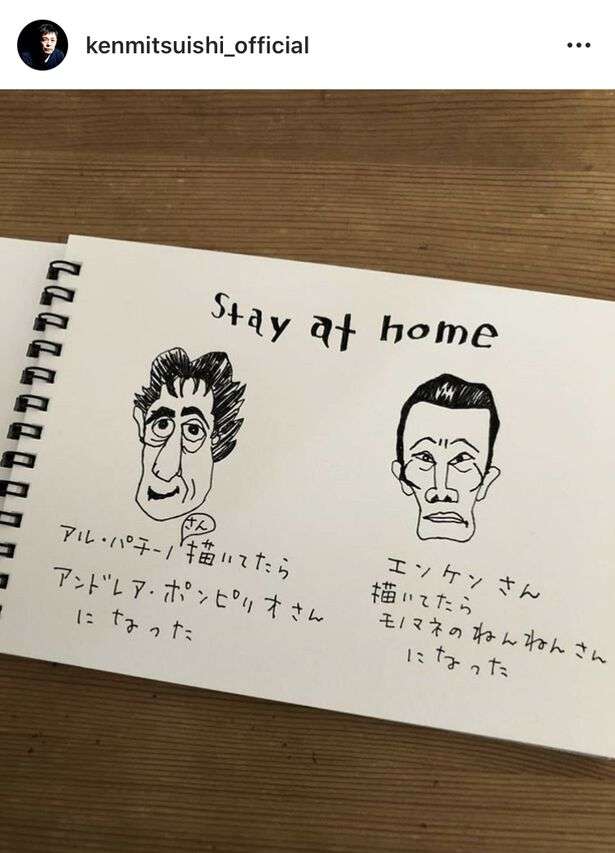 kenmitsuishi_official
Stay at home
アル・パチーノさん描いてたら
アンドレア・ポンピリオさん
になった
エンケンさん
描いてたら
モノマネのねんねんさん
になった